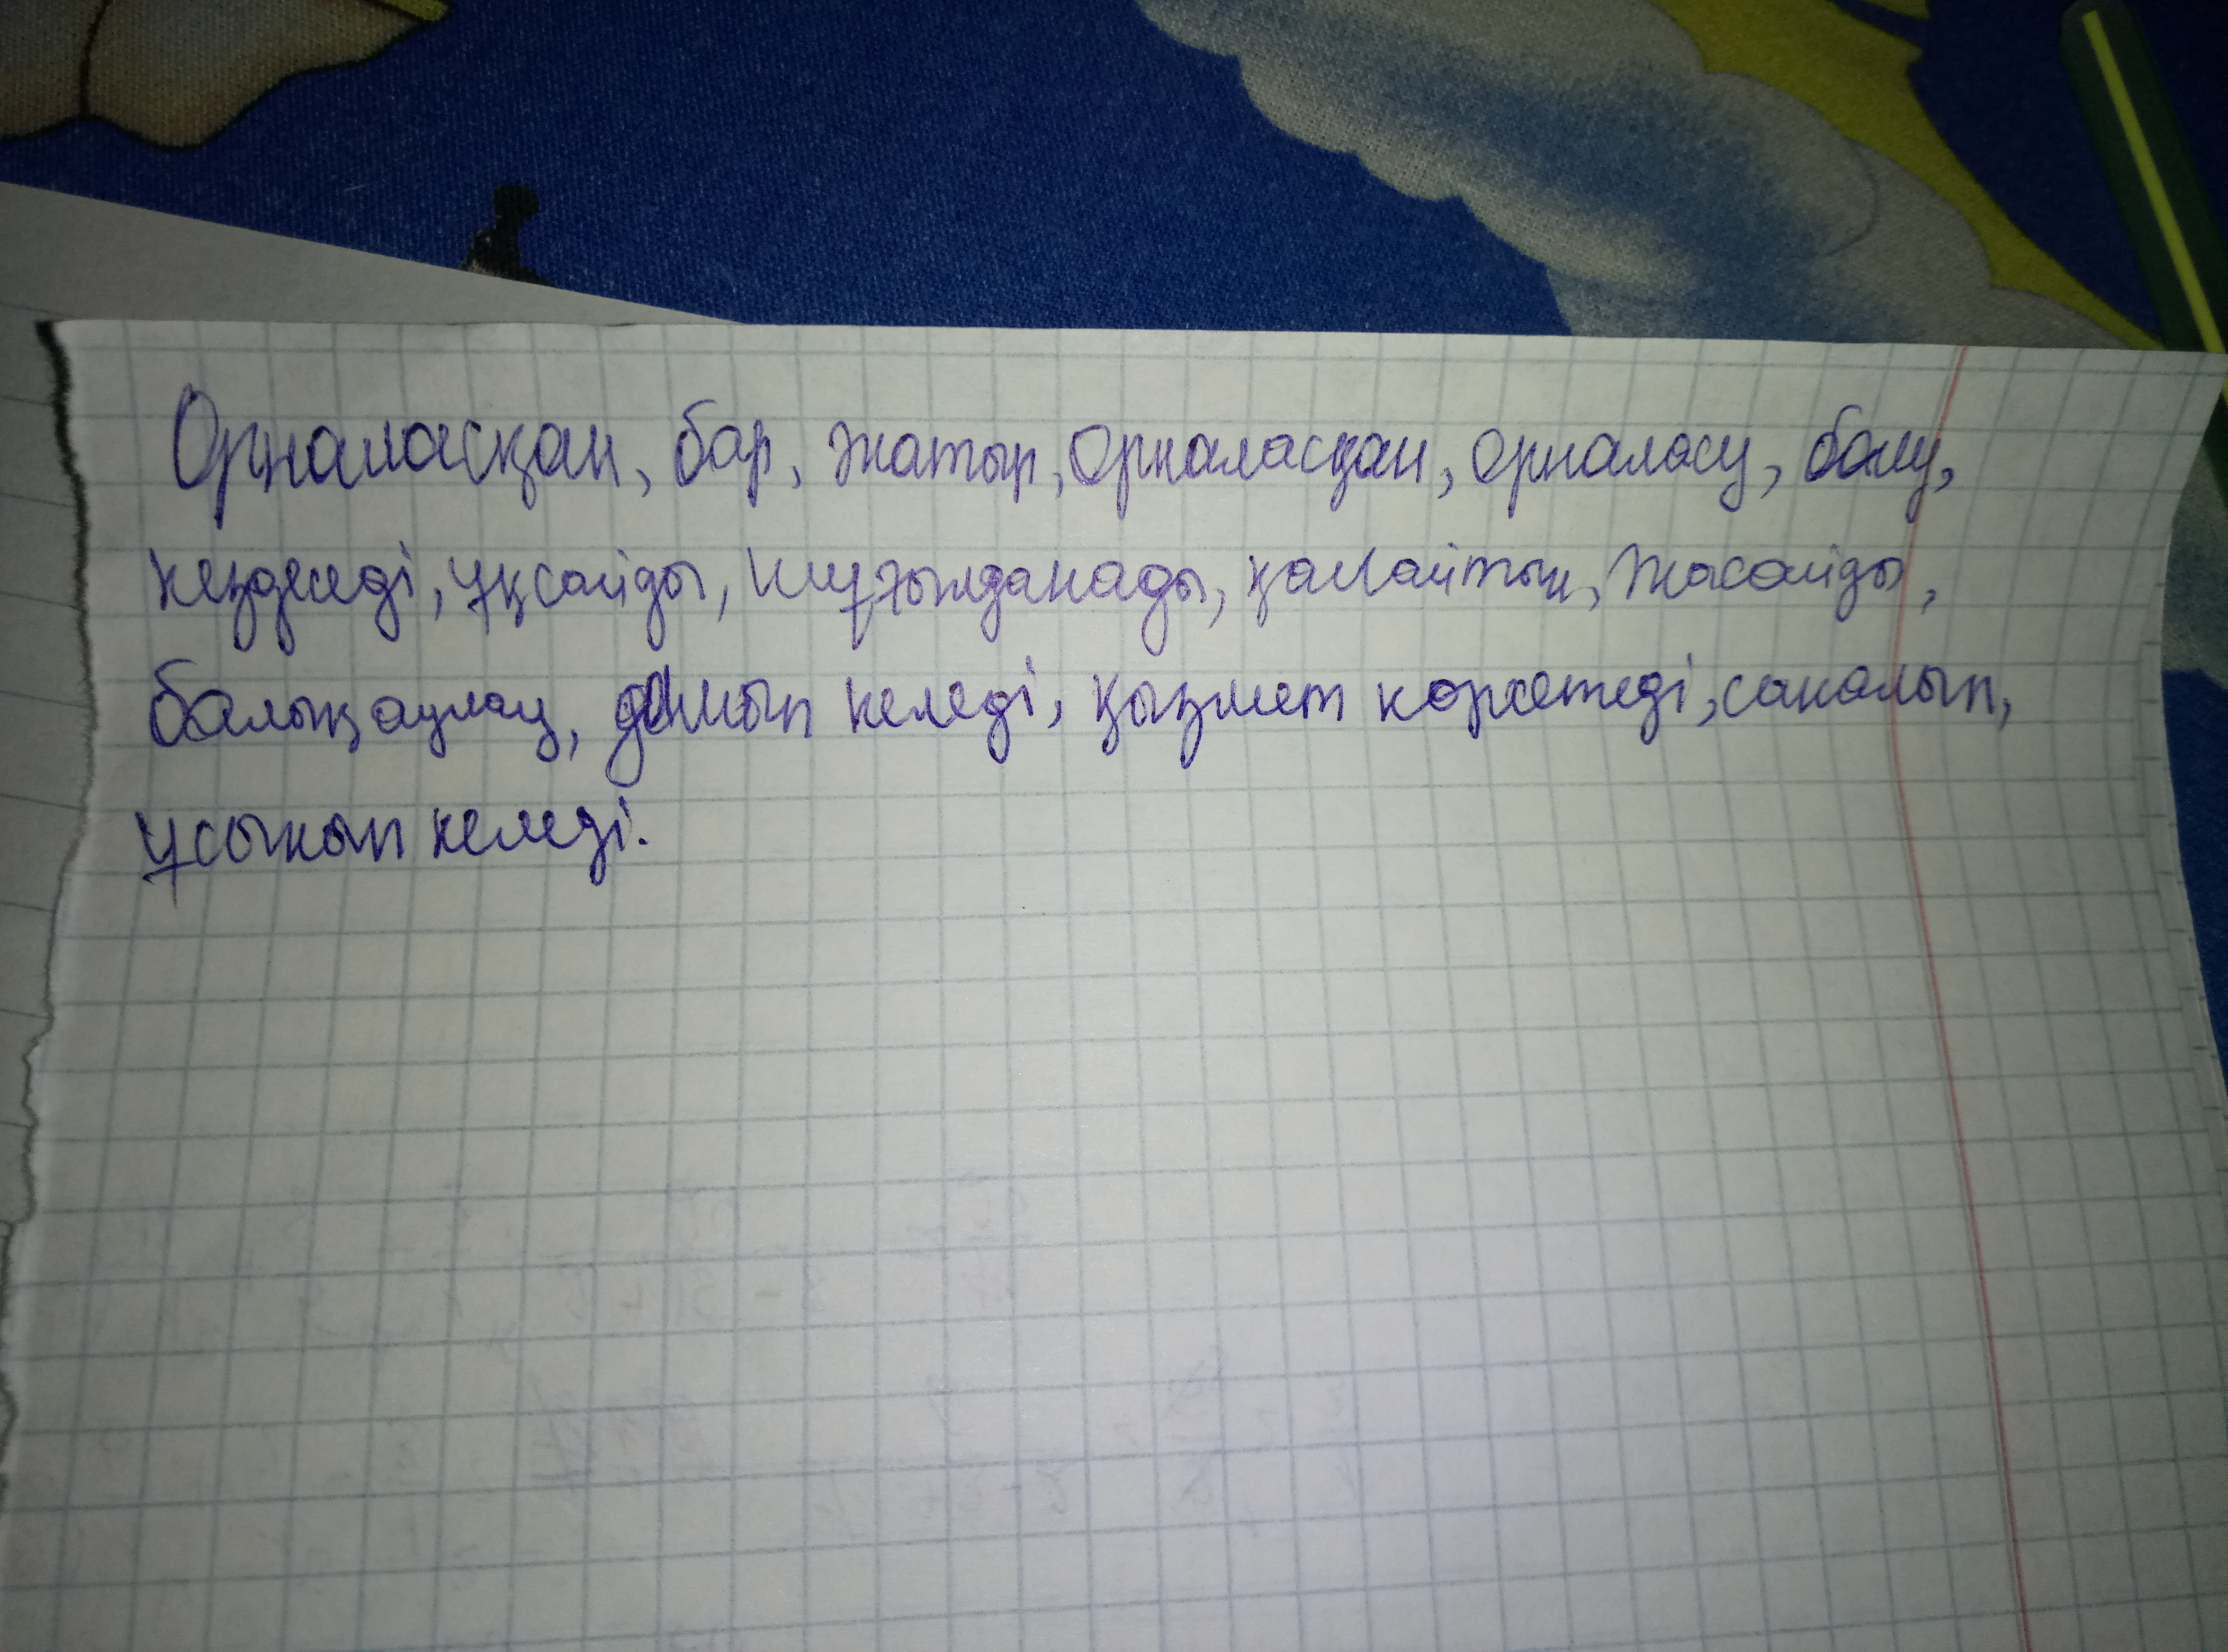 Орналасқан, бар, жатыр, орналасқан, орналасу, болу,
кездеседі, ұқсайды, шұғылданады, қалайтын, жасайды,
балық аулау, дамып келеді, қызмет көрсетеді, саналып,
ұсынып келеді.